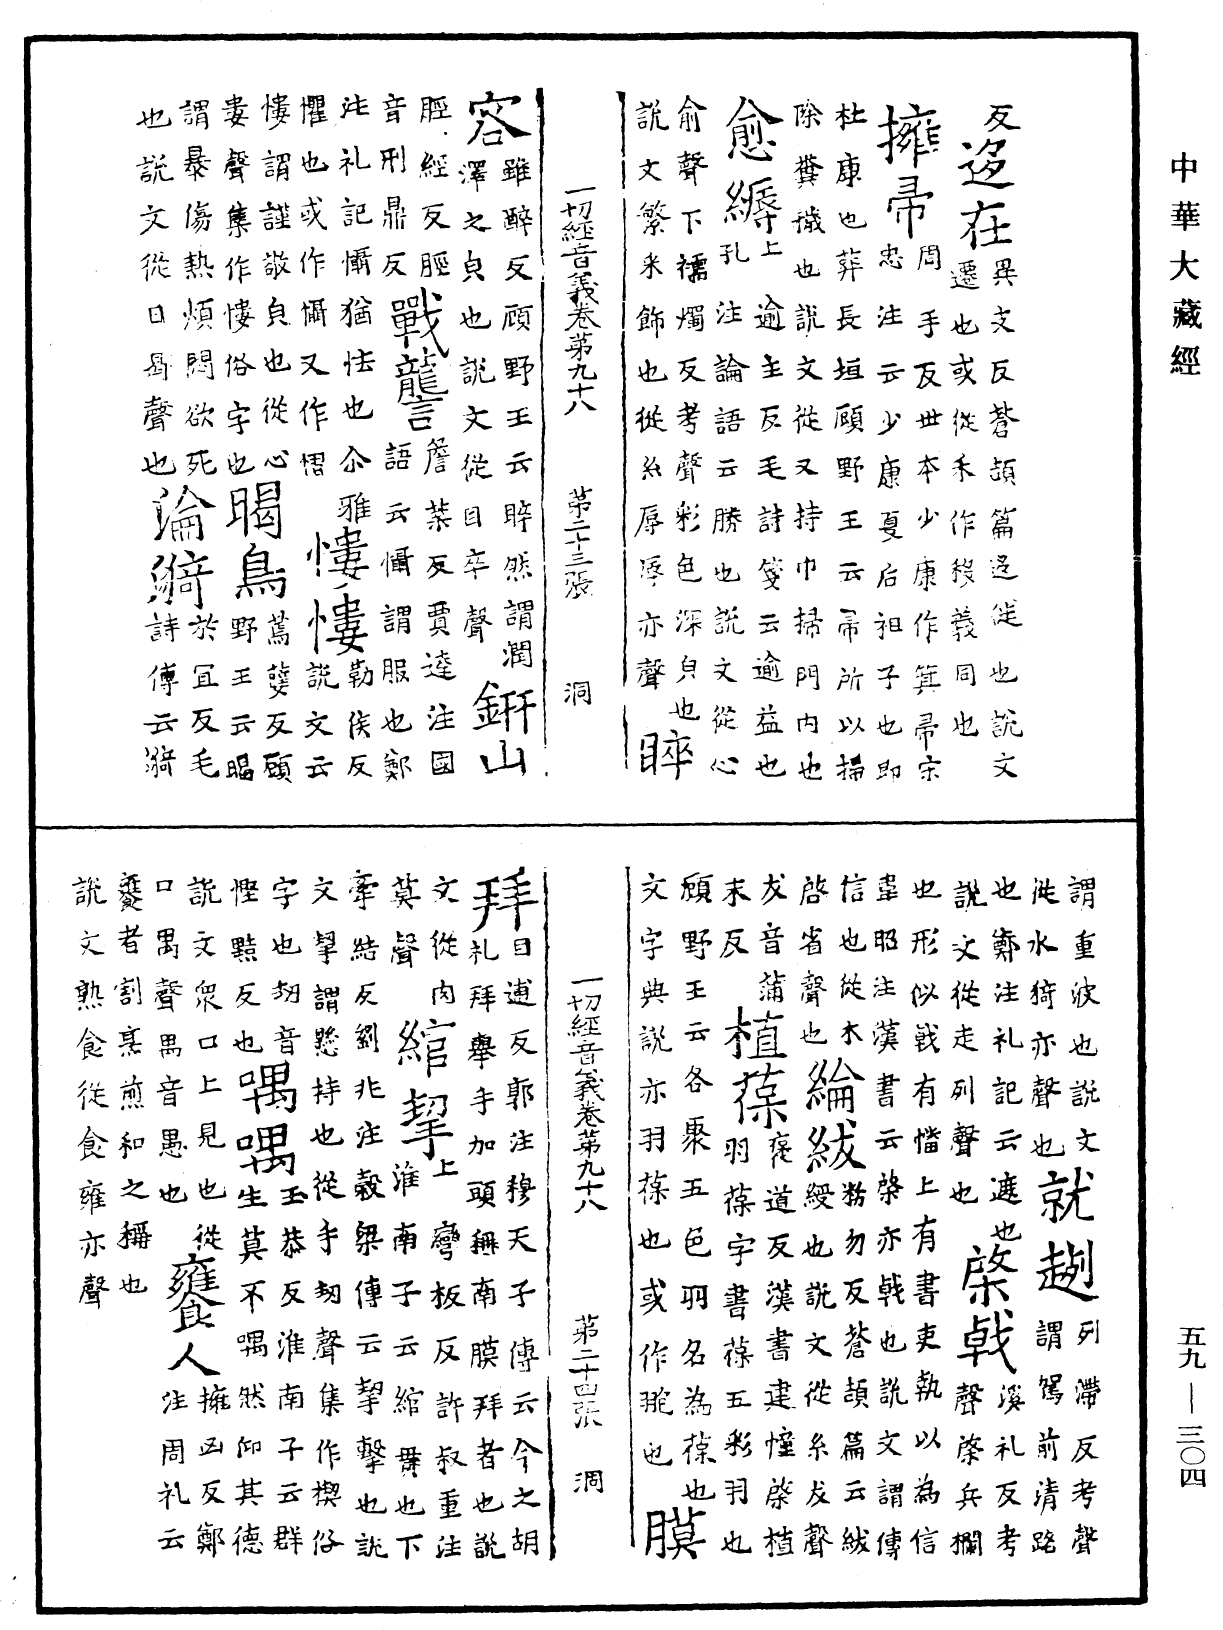 中華大藏經
反迻在異文反蒼頡篇迻徙也說文
遷也或從禾作移義同也
擁帚周手反世本少康作箕帚宋
忠注云少康夏后祖子也即
杜康也葬長垣顧野王云帚所以掃
除糞穢也說文從又持巾掃門內也
愈縟上逾主反毛詩箋云逾益也
孔注論語云勝也說文從心
俞聲下褥燭反考聲彩色深皃也
說文繁釆飾也從糸辱辱亦聲睟
一切經音義卷第九十八 第二十三張 洞
容雖醉反顧野王云睟然謂潤
澤之皃也說文從目卒聲鈃山
脛經反脛
音刑鼎反戰讋詹葉反賈逵注國
語云懾謂服也鄭
注礼記懾猶怯也尒雅
懼也或作慴又作慴慺慺勒侯反
說文云
慺謂謹敬皃也從心
婁聲集作慺俗字也暍鳥蔫蘖反顧
野王云暍
謂暴傷熱煩悶欲死
也說文從日曷聲也淪漪於宜反毛
詩傳云漪
謂重波也說文
從水猗亦聲也就趔列滯反考聲
謂駕前清路
也鄭注礼記云遮也
說文從走列聲也棨戟溪礼反考
聲棨兵欄
也形似戟有幡上有書吏執以為信
韋昭注漢書云棨亦戟也說文謂傳
信也從木
啓省聲也綸紱紛勿反蒼頡篇云紱
綬也說文從糸犮聲
犮音蒲
末反植葆褒道反漢書建幢棨植
羽葆字書葆五彩羽也
顧野王云各聚五色羽名為葆也
文字典說亦羽葆也或作䎂也膜
一切經音義卷第九十八 第二十四張 洞
拜日逋反郭注穆天子傳云今之胡
礼拜舉手加頭稱南膜拜者也說
文從肉
莫聲綰挈上彎板反許叔重注
淮南子云綰貫也下
牽結反劉兆注穀梁傳云挈擊也說
文挈謂懸持也從手㓞聲集作楔俗
字也㓞音
慳黠反也喁喁玉恭反淮南子云群
生莫不喁然仰其德
說文眾口上見也從
口禺聲禺音愚也饔人擁凶反鄭
注周礼云
饔者割烹煎和之稱也
說文熟食從食雍亦聲
五九—三〇四